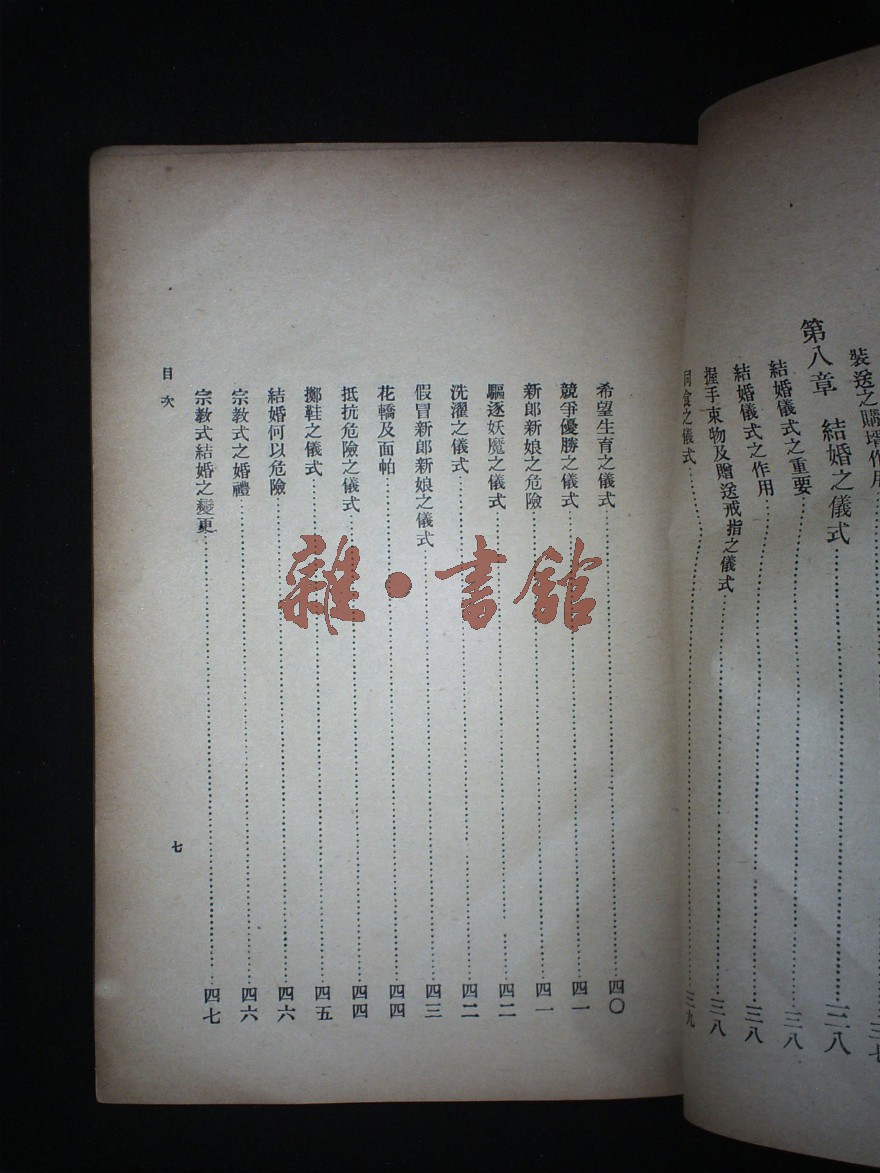 裝送之購壻作用……三七
第八章　結婚之儀式……三八
結婚儀式之重要……三八
結婚儀式之作用……三八
握手束物及贈送戒指之儀式……三八
同食之儀式……三九
希望生育之儀式……四〇
競爭優勝之儀式……四一
新郎新娘之危險……四一
驅逐妖魔之儀式……四二
洗濯之儀式……四二
假冒新郎新娘之儀式……四三
花轎及面帕……四四
抵抗危險之儀式……四四
擲鞋之儀式……四五
結婚何以危險……四六
宗教式之婚禮……四六
宗教式結婚之變更……四七
目次
七
雜·書館